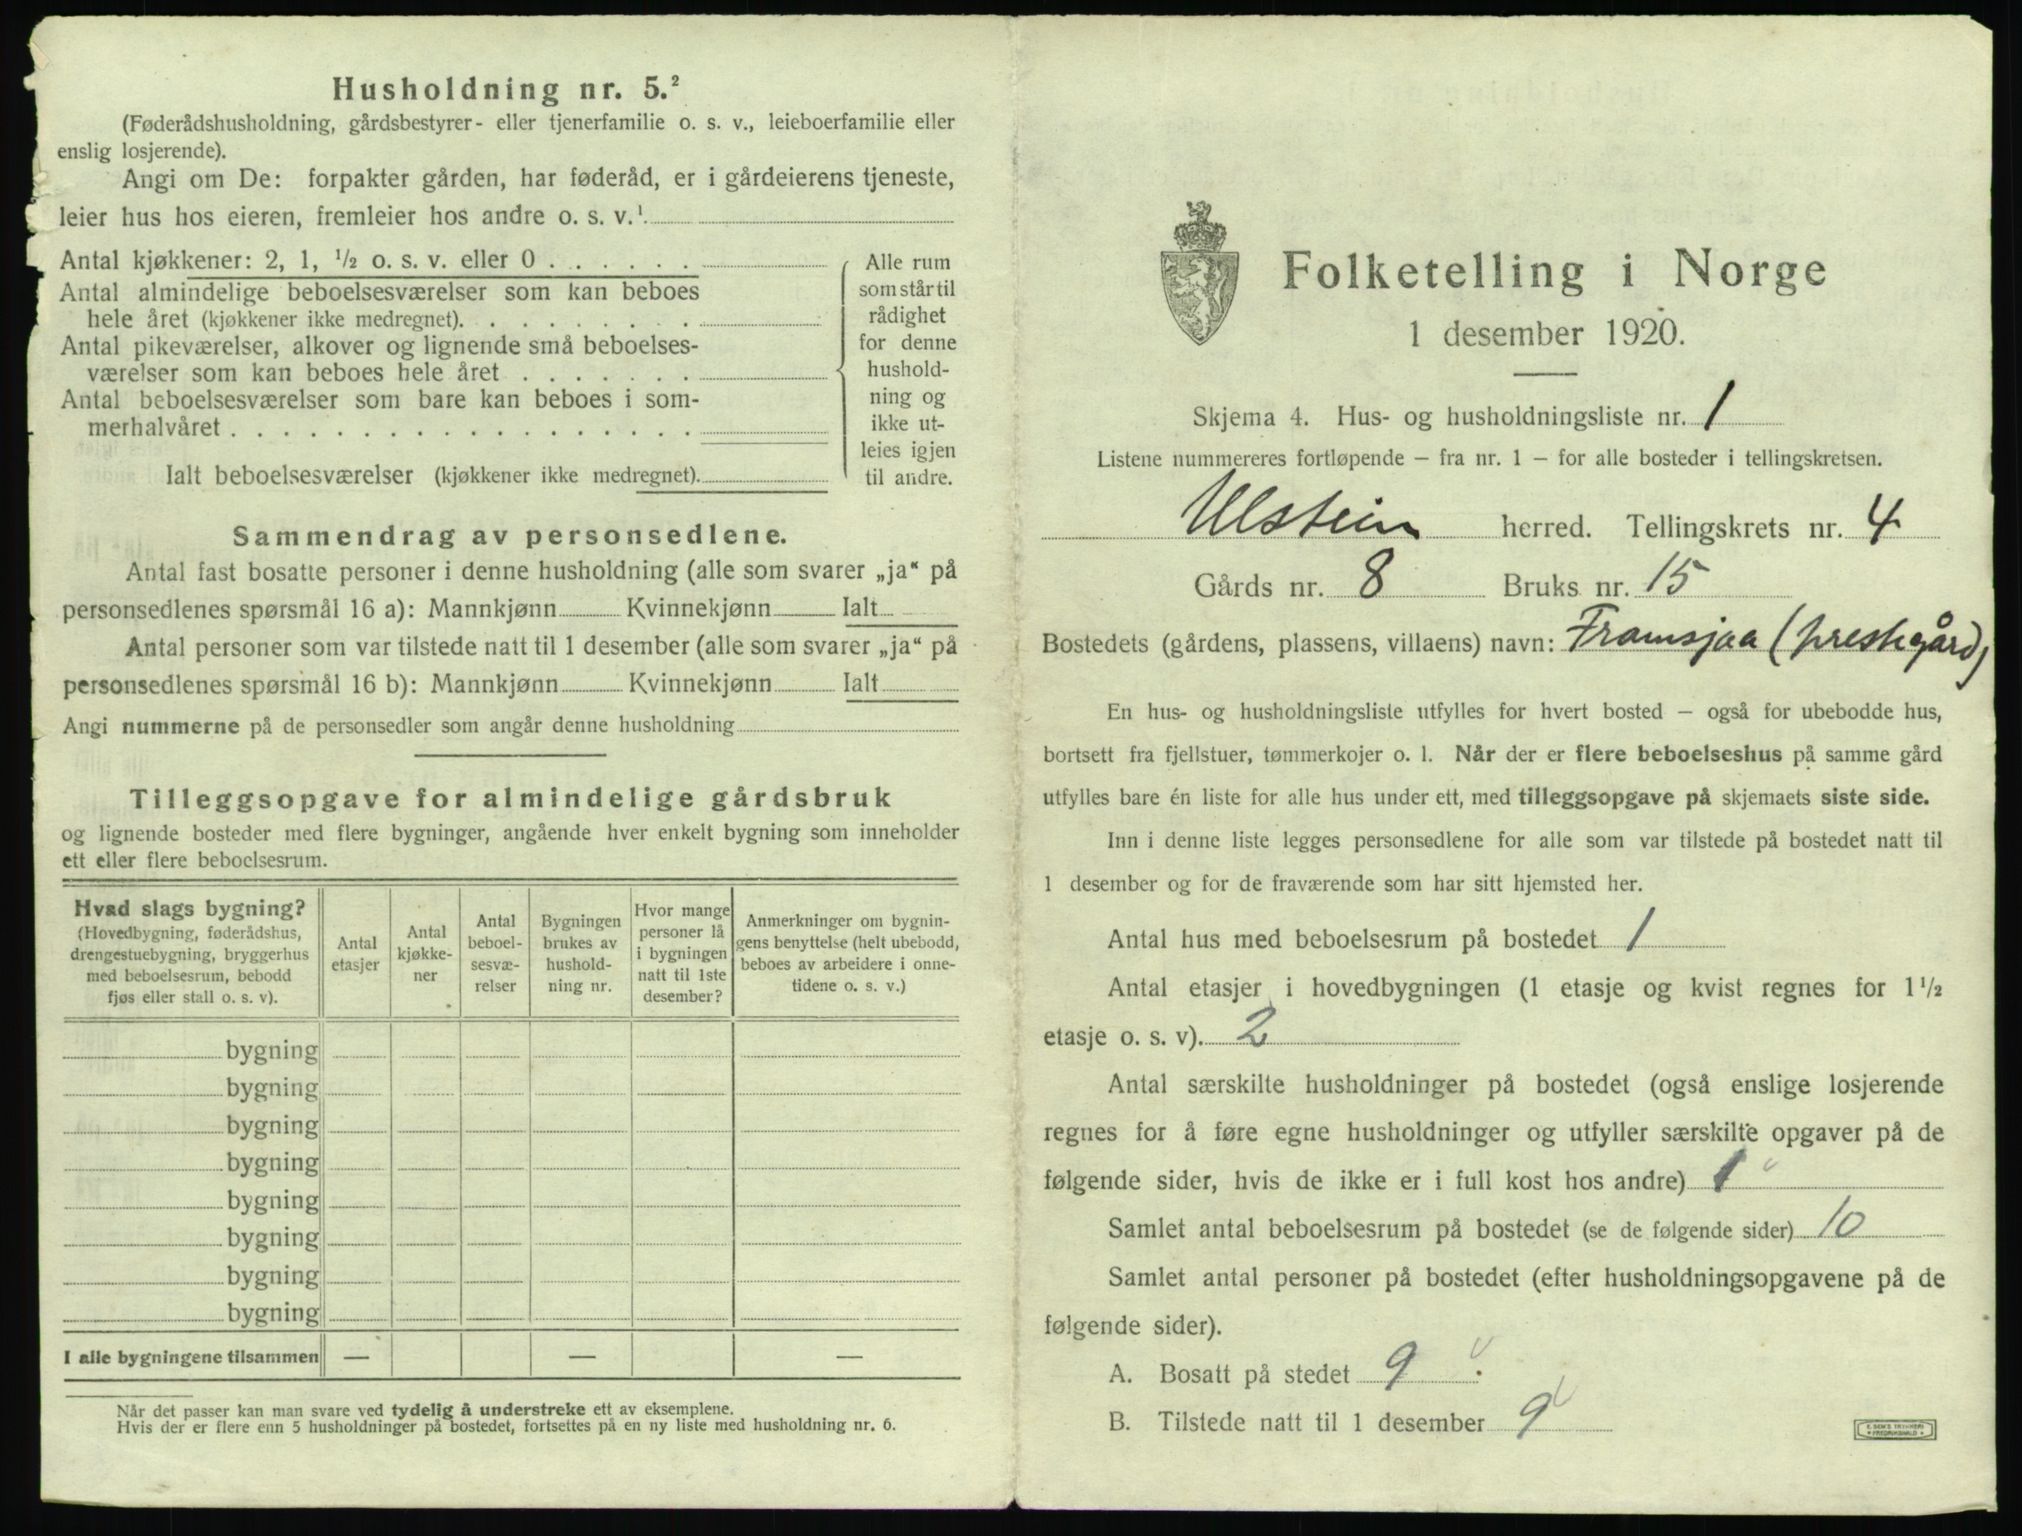 Husholdning nr. 5.²
(Føderådshusholdning, gårdsbestyrer- eller tjenerfamilie o. s. v., leieboerfamilie eller
enslig losjerende).
Angi om De: forpakter gården, har føderåd, er i gårdeierens tjeneste,
leier hus hos eieren, fremleier hos andre o. s. v.¹
Antal kjøkkener: 2, 1, ½ o. s. v. eller 0 . . . . . .
Antal almindelige beboelsesværelser som kan beboes
hele året (kjøkkener ikke medregnet). . . . . . . . .
Antal pikeværelser, alkover og lignende små beboelses-
værelser som kan beboes hele året . . . . . . .
Antal beboelsesværelser som bare kan beboes i som-
merhalvåret . . . . . . . . . . . . . . . . . .
Ialt beboelsesværelser (kjøkkener ikke medregnet).
Alle rum
som står til
rådighet
for denne
hushold-
ning og
ikke ut-
leies igjen
til andre.
Sammendrag av personsedlene.
Antal fast bosatte personer i denne husholdning (alle som svarer „ja“ på
personsedlenes spørsmål 16 a): Mannkjønn Kvinnekjønn Ialt
Antal personer som var tilstede natt til 1 desember (alle som svarer „ja“ på
personsedlenes spørsmål 16 b): Mannkjønn Kvinnekjønn Ialt
Angi nummerne på de personsedler som angår denne husholdning
Tilleggsopgave for almindelige gårdsbruk
og lignende bosteder med flere bygninger, angående hver enkelt bygning som inneholder
ett eller flere beboelsesrum.
Hvad slags bygning?
(Hovedbygning, føderådshus,
drengestuebygning, bryggerhus
med beboelsesrum, bebodd
fjøs eller stall o. s. v).
Antal
etasjer
Antal
kjøkke-
ner
Antal
beboel-
sesvæ-
relser
Bygningen
brukes av
hushold-
ning nr.
Hvor mange
personer lå
i bygningen
natt til 1ste
desember?
Anmerkninger om bygnin-
gens benyttelse (helt ubebodd,
beboes av arbeidere i onne-
tidene o. s. v.)
bygning
bygning
bygning
bygning
bygning
bygning
bygning
bygning
I alle bygningene tilsammen — — —
Når det passer kan man svare ved tydelig å understreke ett av eksemplene.
Hvis der er flere enn 5 husholdninger på bostedet, fortsettes på en ny liste med husholdning nr. 6.
Folketelling i Norge
1 desember 1920.
Skjema 4. Hus- og husholdningsliste nr. 1
Listene nummereres fortløpende – fra nr. 1 – for alle bosteder i tellingskretsen.
Ulstein herred. Tellingskrets nr. 4
Gårds nr. 8 Bruks nr. 15
Bostedets (gårdens, plassens, villaens) navn: Framsjaa (prestegård)
En hus- og husholdningsliste utfylles for hvert bosted – også for ubebodde hus,
bortsett fra fjellstuer, tømmerkojer o. l. Når der er flere beboelseshus på samme gård
utfylles bare én liste for alle hus under ett, med tilleggsopgave på skjemaets siste side.
Inn i denne liste legges personsedlene for alle som var tilstede på bostedet natt til
1 desember og for de fraværende som har sitt hjemsted her.
Antal hus med beboelsesrum på bostedet 1
Antal etasjer i hovedbygningen (1 etasje og kvist regnes for 1½
etasje o. s. v). 2
Antal særskilte husholdninger på bostedet (også enslige losjerende
regnes for å føre egne husholdninger og utfyller særskilte opgaver på de
følgende sider, hvis de ikke er i full kost hos andre) 1
Samlet antal beboelsesrum på bostedet (se de følgende sider) 10
Samlet antal personer på bostedet (efter husholdningsopgavene på de
følgende sider).
A. Bosatt på stedet 9
B. Tilstede natt til 1 desember 9
E. SEM'S TRYKKERI
FREDRIKSHALD